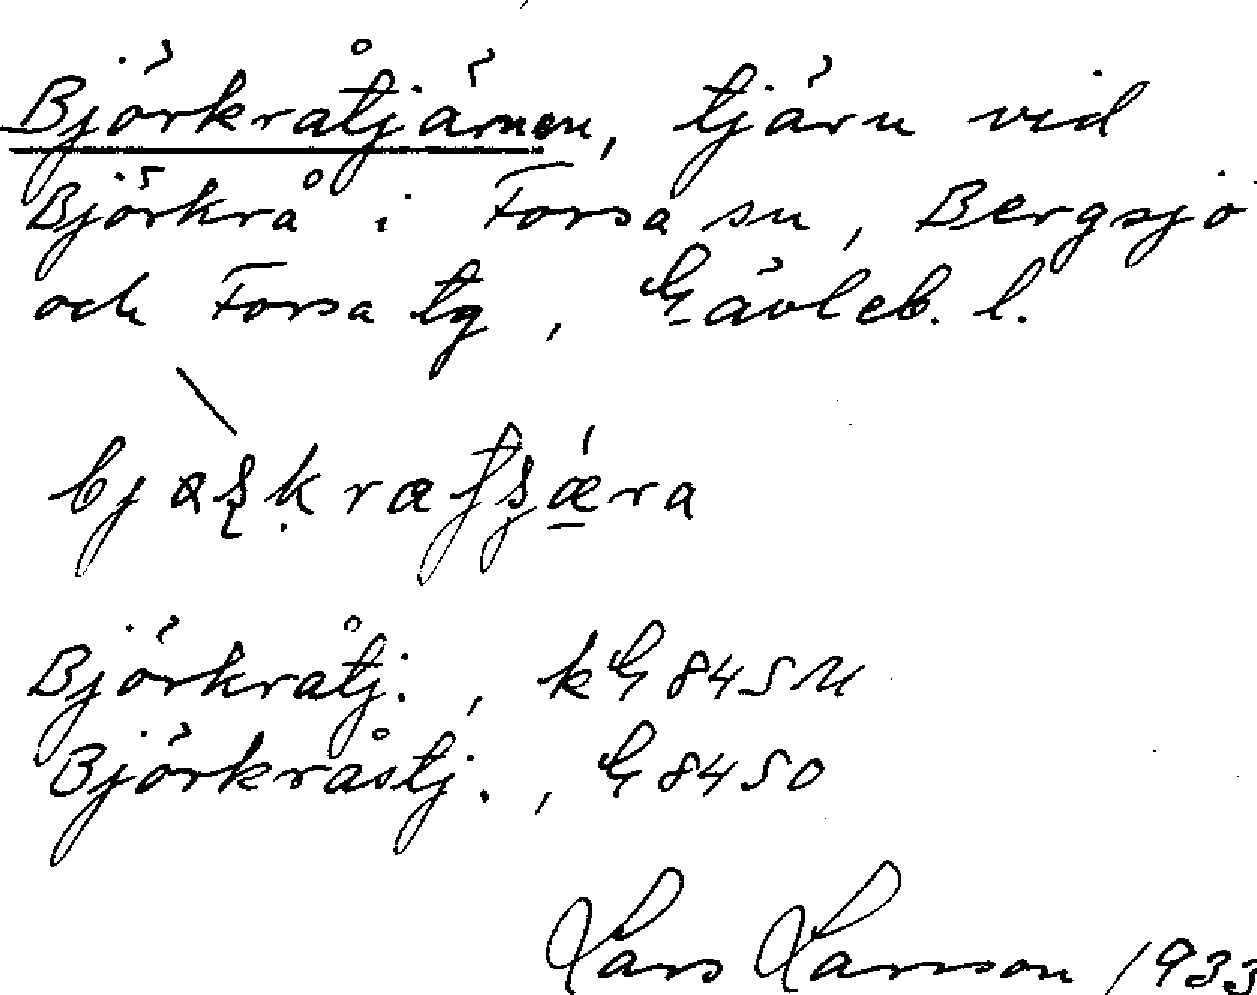 Björkråtjärnen, tjärn vid
Björkrå i Forsa sn, Bergsjö
och Forsa tg, Gävleb. l.
Björkråtj., kG 845 M
Björkråstj., G 845 O
Lars Larsson 1933